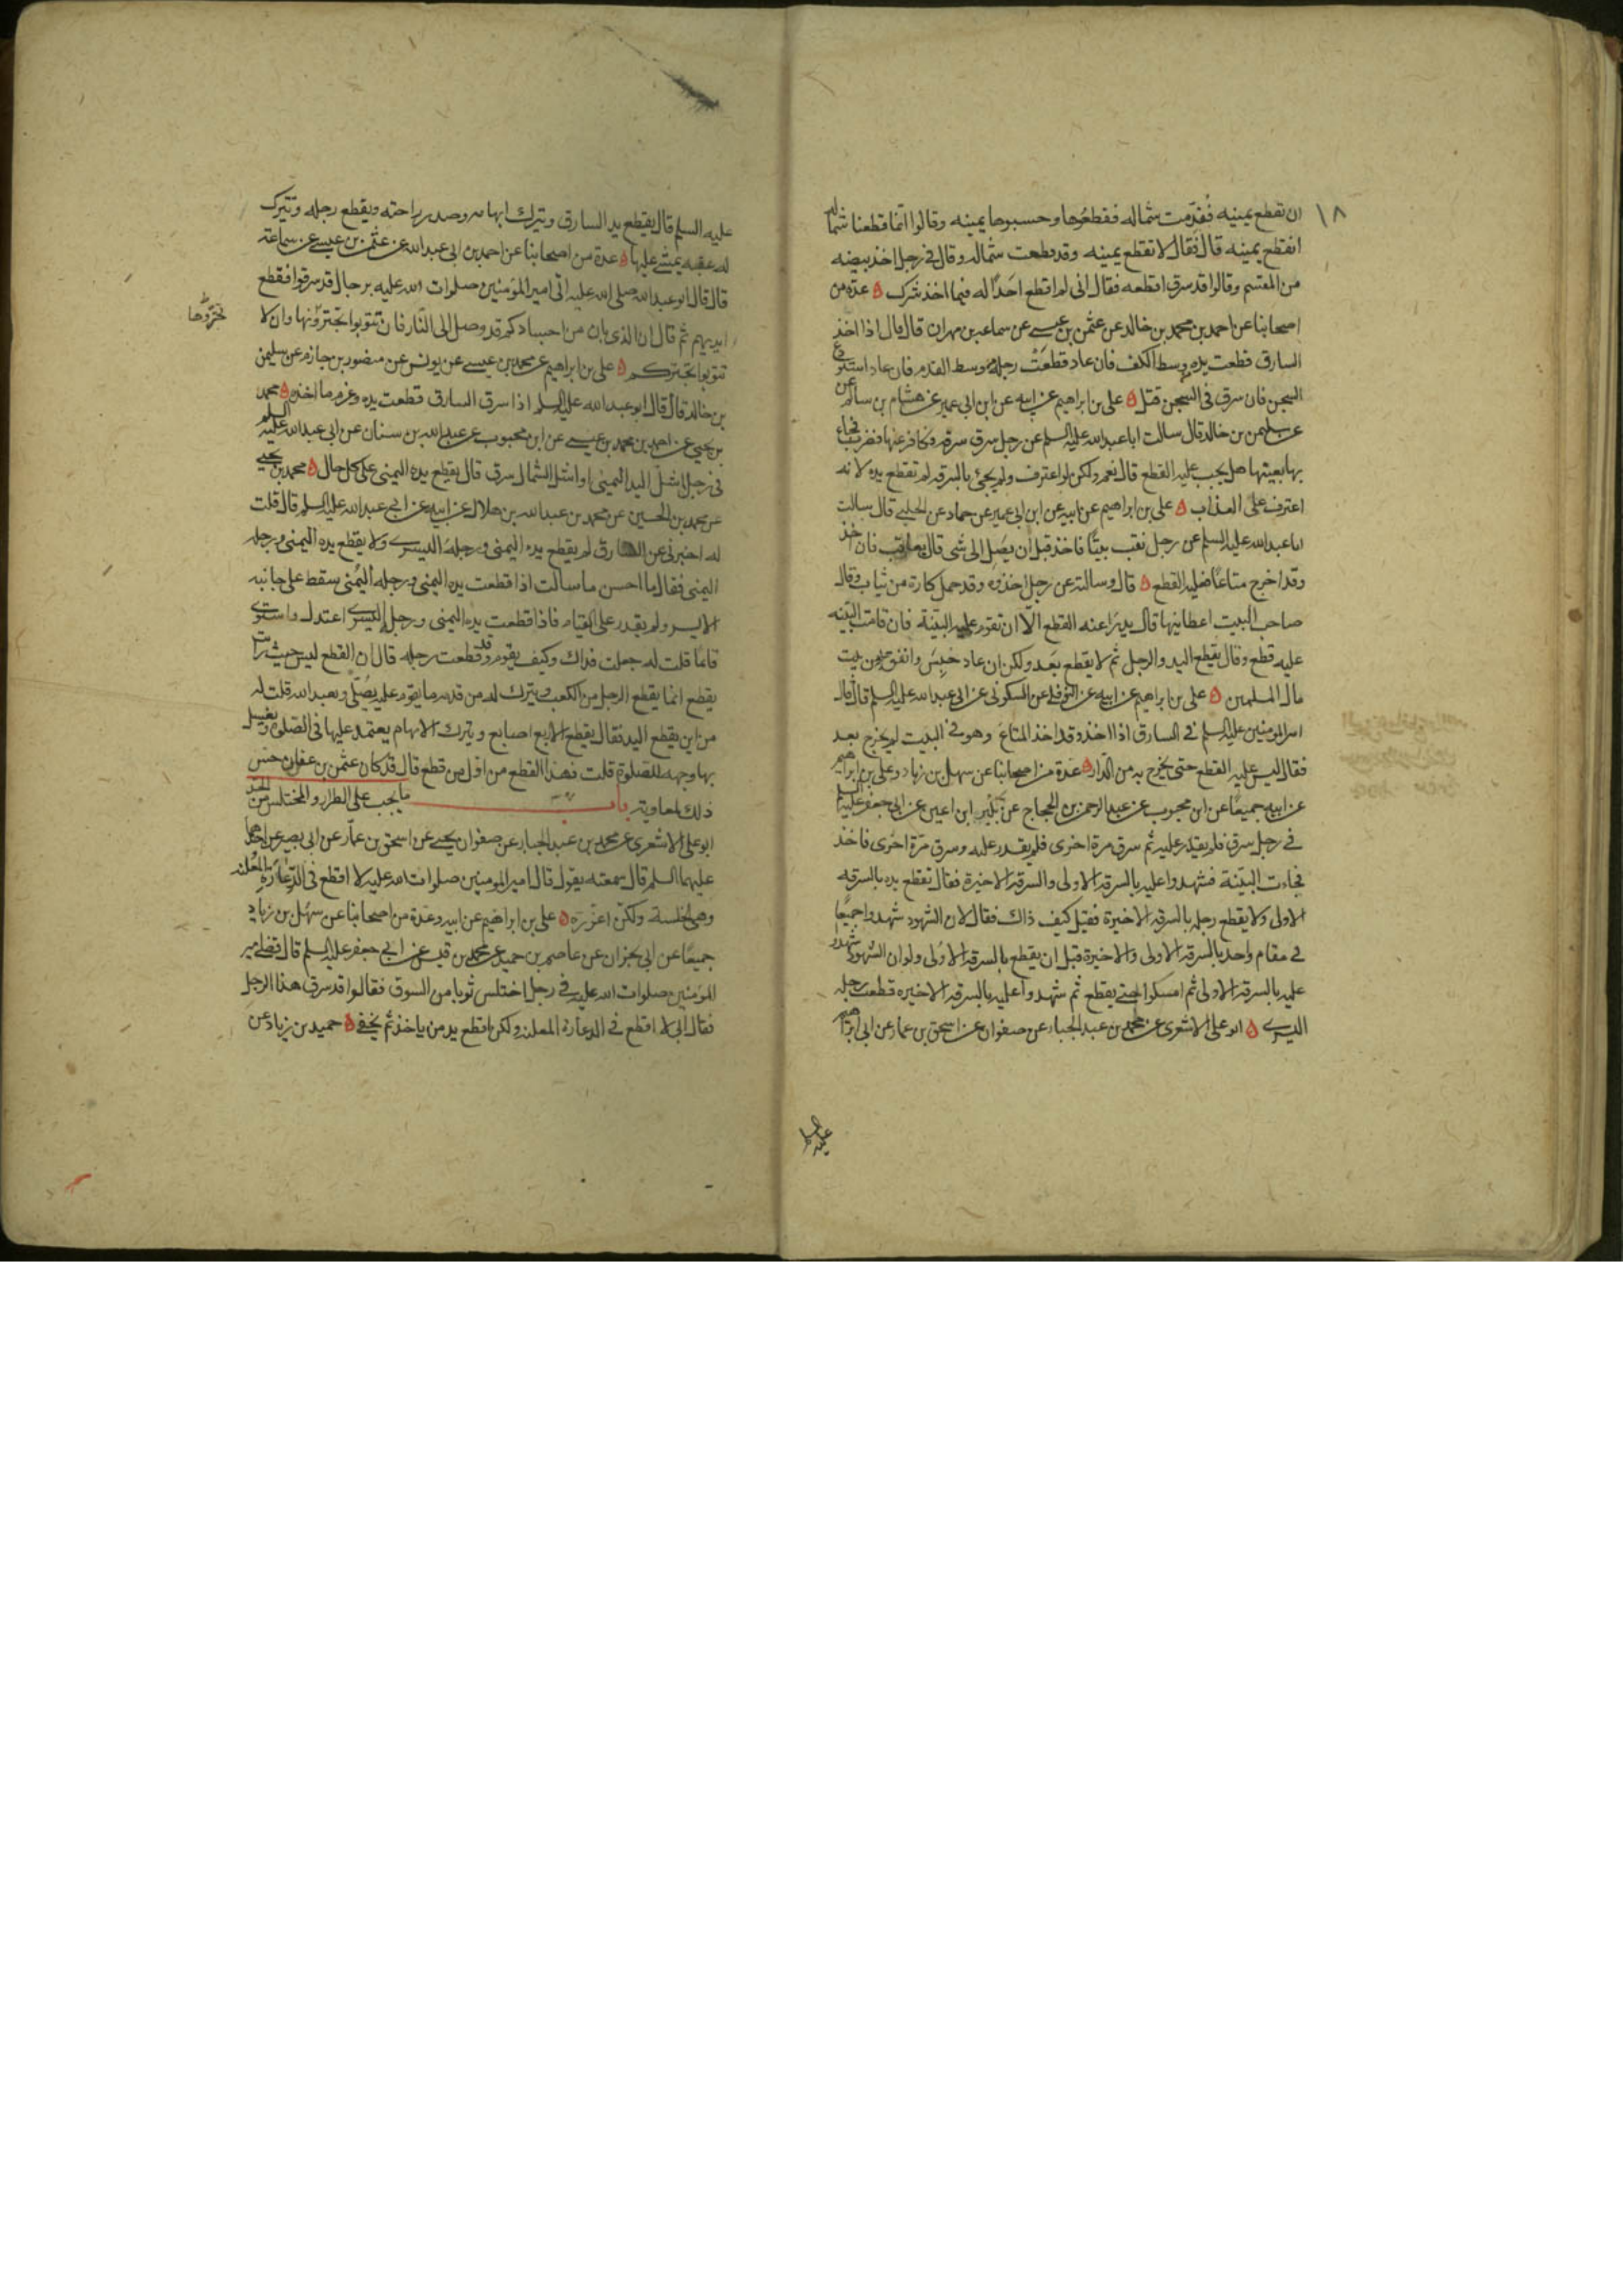 ١٨
ان تقطع يمينه فقدّمت شماله فقطعوها وحسبوها يمينه وقالوا انّما قطعنا شماله
انقطع يمينه قال فقال لا تقطع يمينه وقد قطعت شماله وقال في رجل اخذ بيضه
من المقسم وقالوا قد سرق اقطعه فقال اني لم اقطع احدًا له فيما اخذ شرك ه عدة من
اصحابنا عن احمد بن محمد بن خالد عن عثمن بن عيسى عن سماعه بن مهران قال قال اذا اخذ
السارق قطعت يده وسط الكف فان عاد قطعت رجله وسط القدم فان عاد استودع
السجن فان سرق في السجن قتل ه علي بن ابراهيم عن ابيه عن ابن ابي عمير عن هشام بن سالم
عن سليمن بن خالد قال سالت ابا عبدالله عليه السلم عن رجل سرق سرقه فكافر عنها فضرب فجاء
بها بعينها هل يجب عليه القطع قال نعم ولكن لو اعترف ولم يجئ بالسرقه لم تقطع يده لانه
اعترف على العذاب ه علي بن ابراهيم عن ابيه عن ابن ابي عمير عن حماد عن الحلبي قال سالت
ابا عبدالله عليه السلم عن رجل نقب بيتًا فاخذ قبل ان يصل الى شى قال يعاقب فان اخذ
وقد اخرج متاعًا فعليه القطع ه قال وسالته عن رجل اخذوه وقد حمل كارة من ثياب وقال
صاحب البيت اعطانيها قال يدرا عنه القطع الّا ان تقوم عليه البيّنة فان قامت البيّنه
عليه قطع وقال يقطع اليد والرجل ثم لا يقطع بعد ولكن ان عاد حبس وانفق عليه من بيت
مال المسلمين ه علي بن ابراهيم عن ابيه عن النوفلي عن السكوني عن ابي عبدالله عليه السلم قال قال
امير المومنين عليه السلم في السارق اذا اخذ وقد اخذ المتاع وهو في البيت لم يخرج بعد
فقال ليس عليه القطع حتى يخرج به من الدار ه عدة من اصحابنا عن سهل بن زياد وعلي بن ابراهيم
عن ابيه جميعًا عن ابن محبوب عن عبد الرحمن بن الحجاج عن بكير ابن اعين عن ابي جعفر عليه السلم
في رجل سرق فلم يقدر عليه ثم سرق مرة اخرى فلم يقدر عليه وسرق مرّة اخرى فاخذ
فجاءت البيّنة فشهدوا عليه بالسرقه الاولى والسرقه الاخيرة فقال تقطع يده بالسرقه
الاولى ولا يقطع رجله بالسرقه الاخيرة فقيل كيف ذاك فقال لان الشهود شهدوا جميعًا
في مقام واحد بالسرقه الاولى والاخيرة قبل ان يقطع بالسرقه الاولى ولو ان الشهود شهدوا
عليه بالسرقه الاولى ثم امسكوا حتى يقطع ثم شهدوا عليه بالسرقه الاخيره قطعت رجله
اليسرى ه ابو علي الاشعري عن محمد بن عبد الجبار عن صفوان عن اسحق بن عمار عن ابي ابراهيم
عليه السلم
عليه السلم قال يقطع يد السارق ويترك ابهامه وصدر راحته ويقطع رجله وتترك
له عقبه يمشي عليها ه عدة من اصحابنا عن احمد بن ابي عبدالله عن عثمن بن عيسى عن سماعة
قال قال ابو عبدالله صلى الله عليه اتي امير المؤمنين صلوات الله عليه برجال قد سرقوا فقطع
ايديهم ثم قال ان الذي بان من اجسادكم قد وصل الى النار فان تتوبوا تجترّونها وان لا
تجرّوها
تتوبوا تجتركم ه علي بن ابراهيم عن محمد بن عيسى عن يونس عن منصور بن حازم عن سليمن
بن خالد قال قال ابو عبدالله عليه السلم اذا سرق السارق قطعت يده وغرم ما اخذه ه محمد
بن يحيى عن احمد بن محمد بن عيسى عن ابن محبوب عن عبدالله بن سنان عن ابي عبدالله عليه السلم
في رجل اشلّ اليد اليمنى او اشل الشمال سرق قال يقطع يده اليمنى على كل حال ه محمد بن يحيى
عن محمد بن الحسين عن محمد بن عبدالله بن هلال عن ابيه عن ابي عبدالله عليه السلم قال قلت
له اخبرني عن السارق لم يقطع يده اليمنى ورجله اليسرى ولا يقطع يده اليمنى ورجله
اليمنى فقال ما احسن ما سالت اذا قطعت يده اليمنى ورجله اليمنى سقط على جانبه
الايسر ولم يقدر على القيام فاذا قطعت يده اليمنى ورجله اليسرى اعتدل واستوى
قائمًا قلت له جعلت فداك وكيف يقوم وقد قطعت رجله قال ان القطع ليس حيث رايت
يقطع انما يقطع الرجل من الكعب ويترك له من قدمه ما يقوم عليه يصلّي ويعبد الله قلت له
من اين يقطع اليد فقال يقطع الاربع اصابع ويترك الابهام يعتمد عليها في الصلوة ويغسل
بها وجهه للصلوة قلت فهذا القطع من اوّل من قطع قال قد كان عثمن بن عفان حسّن
ذلك لمعاويه باب ما يجب على الطرار والمختلس من الحد
ابو علي الاشعري عن محمد بن عبد الجبار عن صفوان يحيى عن اسحق بن عمّار عن ابي بصير عن احدهما
عليهما السلم قال سمعته يقول قال امير المومنين صلوات الله عليه لا اقطع في الدّعارّة المعلنة
وهي الخلسة ولكن اعزّره ه علي بن ابراهيم عن ابيه وعدة من اصحابنا عن سهل بن زياد
جميعًا عن ابي نجران عن عاصم بن حميد عن محمد بن قيس عن ابي جعفر عليه السلم قال قضى امير
المؤمنين صلوات الله عليه في رجل اختلس ثوبا من السوق فقالوا قد سرق هذا الرجل
فقال اني لا اقطع في الدعارة المعلنه ولكن اقطع يد من ياخذ ثم يخفي ه حميد بن زياد عن